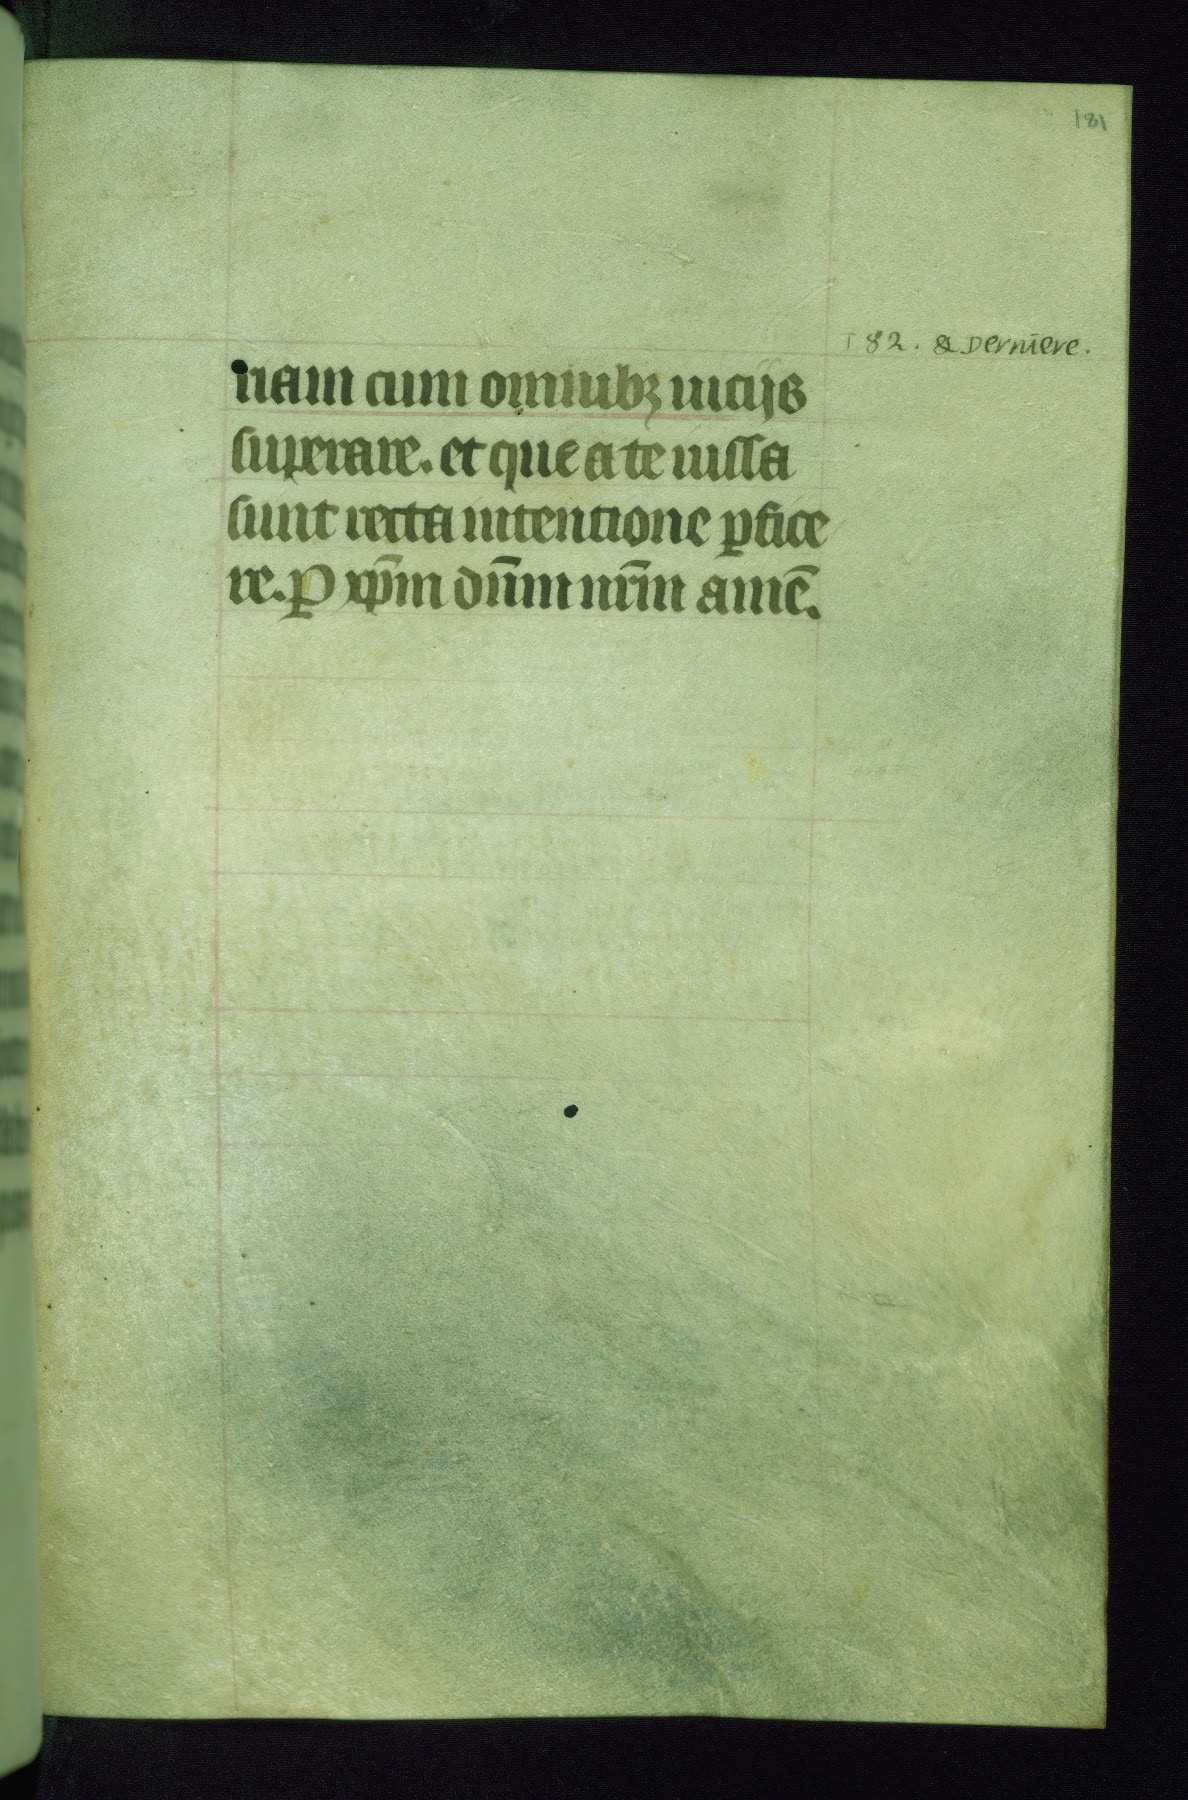 181
182. & Derniere.
nam cum omnibꝫ uicijs
superare. et que a te iussa
sunt recta intentione ꝑfice
re. P xp̄m dn̄m nr̄m amē.